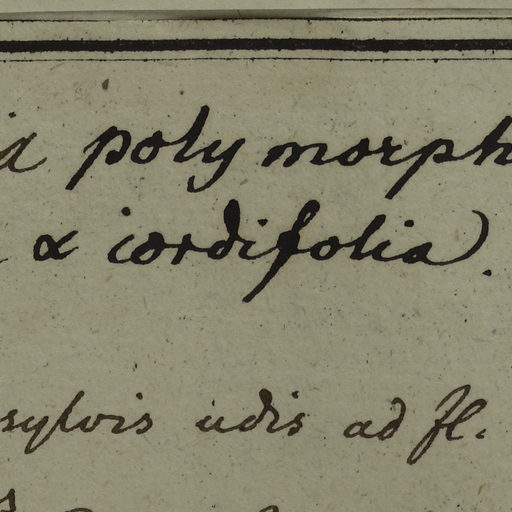 a polymorph
α cordifolia).
sylvis udis ad fl.